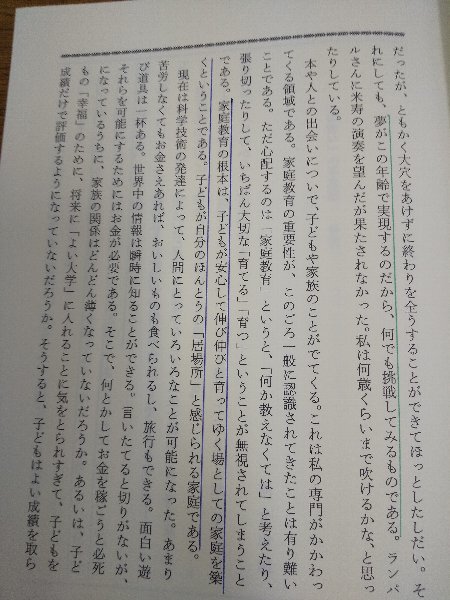 だったが、ともかく大穴をあけずに終わりを全うすることができてほっとしたしだい。そ
れにしても、夢がこの年齢で実現するのだから、何でも挑戦してみるものである。ランパ
ルさんに米寿の演奏を望んだが果たされなかった。私は何歳くらいまで吹けるかな、と思っ
たりしている。
本や人との出会いについて、子どもや家族のことがでてくる。これは私の専門がかかわっ
てくる領域である。家庭教育の重要性が、このごろ一般に認識されてきたことは有り難い
ことである。ただ心配するのは「家庭教育」というと、「何か教えなくては」と考えたり、
張り切ったりして、いちばん大切な「育てる」「育つ」ということが無視されてしまうこと
である。家庭教育の根本は、子どもが安心して伸び伸びと育ってゆく場としての家庭を築
くということである。子どもが自分のほんとうの「居場所」と感じられる家庭である。
現在は科学技術の発達によって、人間にとっていろいろなことが可能になった。あまり
苦労しなくてもお金さえあれば、おいしいものも食べられるし、旅行もできる。面白い遊
び道具は一杯ある。世界中の情報は瞬時に知ることができる。言いたてると切りがないが、
それらを可能にするためにはお金が必要である。そこで、何とかしてお金を稼ごうと必死
になっているうちに、家族の関係はどんどん薄くなっていないだろうか。あるいは、子ど
もの「幸福」のために、将来に「よい大学」に入れることに気をとられすぎて、子どもを
成績だけで評価するようになっていないだろうか。そうすると、子どもはよい成績を取ら